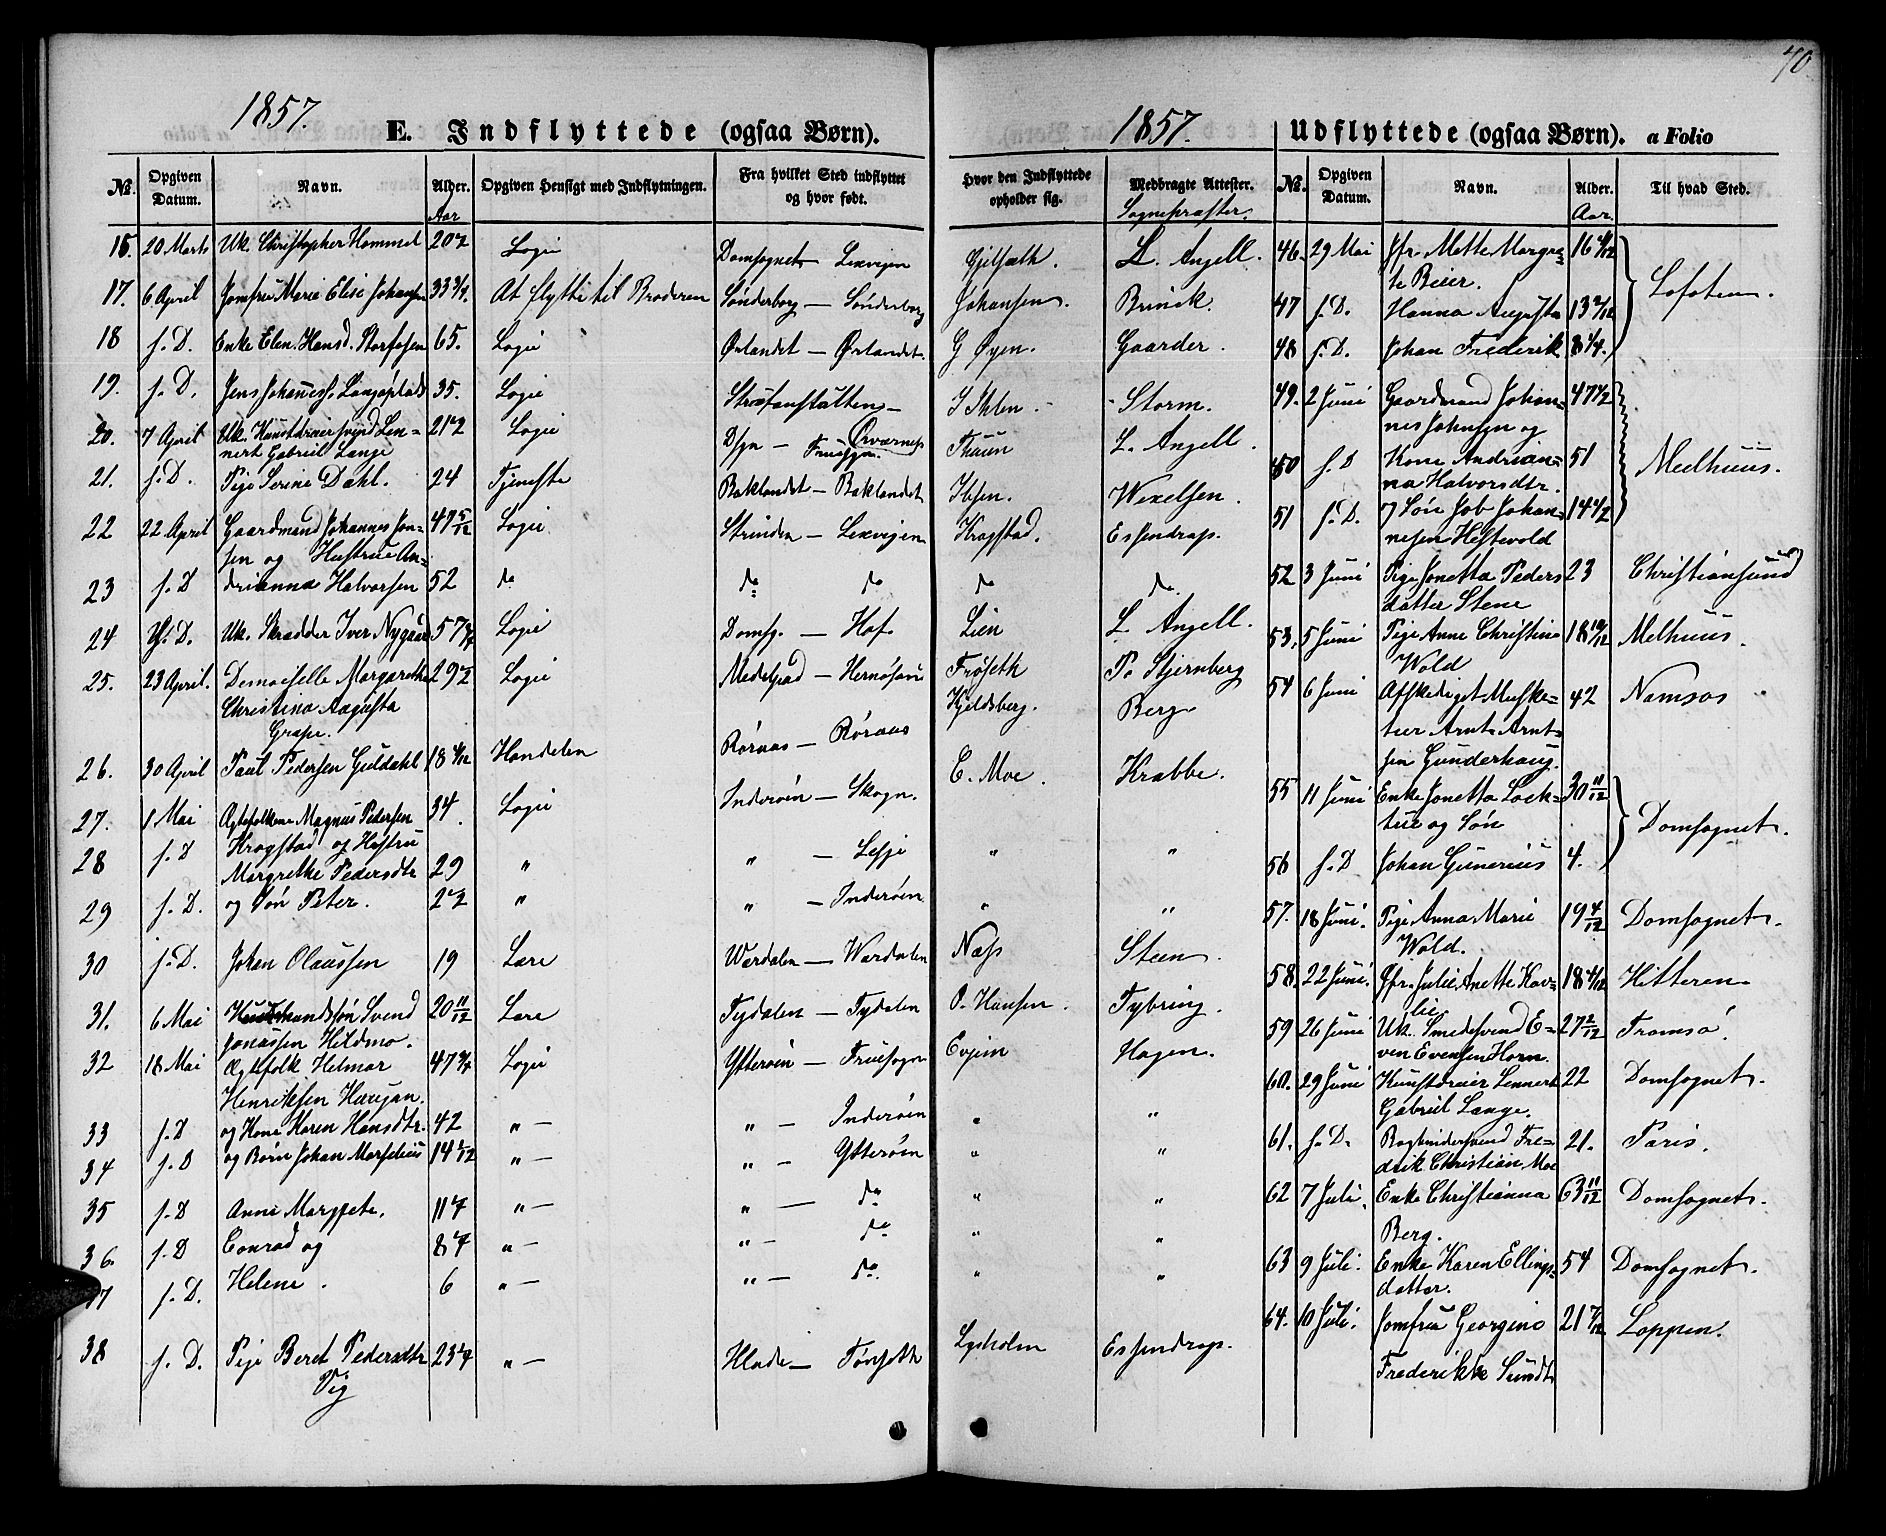 70.
1857.
E. Indflyttede (ogsaa Børn).
№. Opgiven Datum. Navn. Alder. Opgiven Hensigt med Indflytningen. Fra hvilket Sted indflyttet og hvor født. Hvor den Indflyttede opholder sig. Medbragte Attester.
Aar Sognepræster.
20 Marts Uk. Christopher Hommel 20 Logie Domsognet — Lexvigen L. Angell.
17. 6 April Jomfru Marie Elise Johansen 33 3/4. At flytte til Broderen Sønderborg — Sønderborg Johansen. Brinck.
18 s. D. Enke Elen Hansd. Storfosen 65. Logie Ørlandet — Ørlandet. G Øyen. Gaarder.
19. s. D. Jens Johannes. 35. Logie Strafanstalten — Storm.
20. 7 April Uk. Kunstdreiersvend Len=
nert Gabriel Lange 21 1/2 Logie Dsgn — Fruesgn. Thaun L. Angell.
21. s. D. Pige Serine Dahl. 24 Tjeneste Baklandet — Baklandet Ibsen. Wexelsen.
22 22 April Gaardmand Johannes Jon=
sen og Hustrue An= 47 5/12 Logie Strinden — Lexvigen Krogstad. Essendrop.
23 s. D drianna Halvorsen 52 do do do do do
24 s. D. Uk. Skrædder Iver Nygaard 57 Logie Domsg. — Hof. Lien L. Angell.
25. 23 April. Demoiselle Margarethe
Christina Augusta
Grape. 29 1/2 Logie Medelpad — Hernøsand Frøseth P. Stjernberg
Kjeldsberg. Berg
26. 30 April Paul Pedersen Guldahl 18 Handelen Røraas — Røraas
27. 1 Mai Ægtefolkene Magnus Pedersen 34. Logie Inderøen — Skogn. C. Moe. Krabbe.
28 s. D Krogstad og Hustru
Margrethe Pedersdtr 29 " " — Lesje " "
29 s. D. og Søn Peter. 2 1/2 " " — Inderøen " "
30 s. D. Johan Olaussen 19 Lære Værdalen — Værdalen Næss Steen.
31. 6 Mai Huusmandssøn Svend
Jonassen Hildmo. 20 11/12 Lære Tydalen — Tydalen O. Hansen. Tybring.
32 18 Mai Ægtefolk Helmar
Henriksen Haugan. 47 3/4 Logie Ytterøen — Fruesogn Evjen Hagen.
33 s. D og Kone Karen Hansdtr. 42 " — " — Inderøen " "
34 s. D og Børn Johan Marselius 14 1/12 " — " — Ytterøen " "
35 s. D Anne Margrete, 11 " — " — do " "
36. s. D Conrad og 8 " — " — do " "
37 s. D. Helene. 6 " — " — do. " "
38 s. D. Pige Beret Pedersdtr
Vig 23 " — Hlade — Tønseth Lysholm Essendrop.
1857.
Udflyttede (ogsaa Børn). a Folio
№. Opgiven Datum. Navn. Alder. Til hvad Sted.
Aar.
46. 29 Mai Jfr. Mette Margre=
te Beier. 16
47 s. D. Hanna Augusta 13 Lofoten.
48 s. D. Johan Frederik 8 1/4.
49. 2 Juni Gaardmand Johan=
nes Johnsen og 47 1/2
50 s. D Kone Andrian=
na Halvorsdtr. 51 Melhuus.
51 s. D. og Søn Job Johan=
nesen Heftevold 14 1/2
52 3 Juni Pige Jonetta Peders
datter Stene 23 Christiansund
53. 5 Juni Pige Anne Christine
Wold 18 10/12 Melhuus.
54 6 Juni Afskediget Muske=
teer Arnt Arnt=
sen Gunderhaug. 42 Namsos
55 11 Juni Enke Jonetta Lock=
tue og Søn 30 11/12
56 s. D Johan Gunerius 4. Domsognet.
57. 18 Juni. Pige Anna Marie
Wold. 19 4/12 Domsognet.
58. 22 Juni. Jfr. Julie Anette Kav=
lie 18 Hitteren
59 26 Juni Uk. Smedesvend E=
ven Evensen Horn. 27 2/12 Tromsø.
60. 29 Juni Kunstdreier Lennert
Gabriel Lange. 22 Domsognet.
61. s. D. Bogbindersvend Fre=
drik Christian Moe 21. Paris.
62 7 Juli. Enke Christianna
Berg. 63 11/12 Domsognet.
63 9 Juli. Enke Karen Ellings=
datter. 54 Domsognet.
64. 10 Juli. Jomfru Georgine
Frederikke Sundt 21 7/12 Loppen.